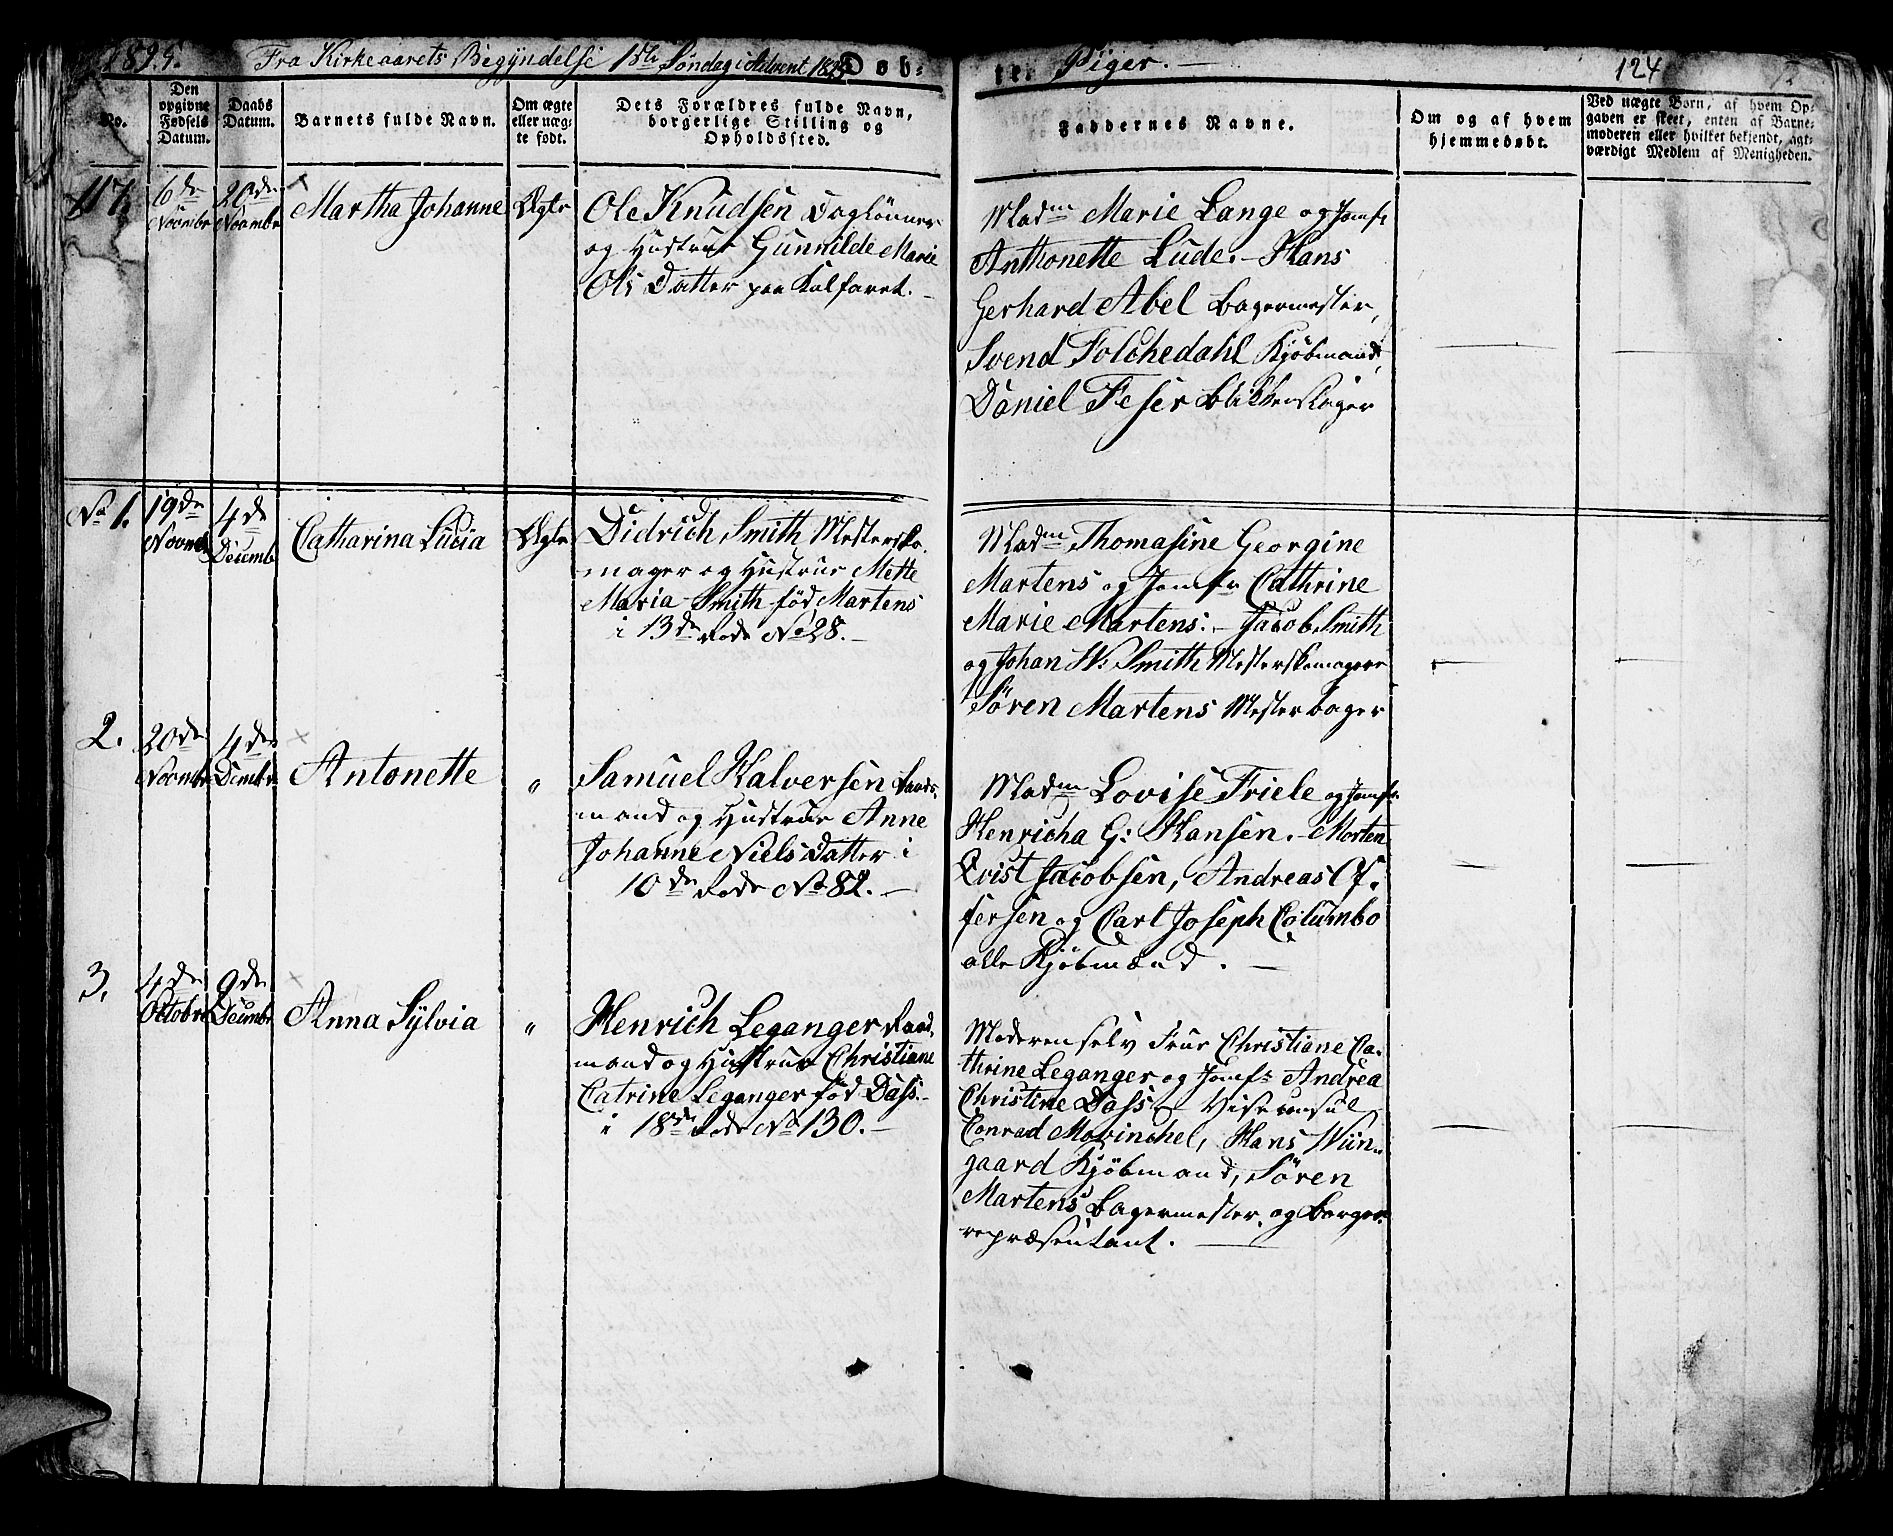 1825. Fra Kirkeaarets Begÿndelse 1ste Søndag i Advent 1825 Døb-
te. Piger. —
124
No.
Den
opgivne
Fødsels
Datum.
Daabs
Datum.
Barnets fulde Navn.
Om ægte
eller uæg-
te født.
Dets Forældres fulde Navn,
borgerlige Stilling og
Opholdssted.
Faddernes Navne.
Om og af hvem
hjemmedøbt.
Ved uægte Børn, af hvem Op-
gaven er skeet, enten af Barne-
moderen eller hvilket bekjendt, agt-
værdigt Medlem af Menigheden.
117.
6de
Novembr
20de
Novembr
Martha Johanne
Ægte
Ole Knudsen Daglønner
og Hustrue Gunnilde Marie
Ols Datter paa Kalfaret. —
Madme Marie Lange og Jomfr
Anthonette Lude. — Hans
Gerhard Abel Bagermester,
Svend Folchedahl Kjøbmand,
Daniel Feser Blikkenslager
No 1.
19de
Novmb
4de
Decemb
Catharina Lucia
Ægte
Didrich Smith Mestersko-
mager og Hustrue Mette
Maria Smith fød Martens
i 13de Rode No 28. —
Madme Thomasine Georgine
Martens og Jomfr Cathrine
Marie Martens. — Jacob Smith
og Johan W: Smith Mesterskomagere
Søren Martens Mesterbager
2.
20de
Novmbr
4de
Dcmbr
Antonette
"
Samuel Halversen
mand og Hustrue Anne
Johanne Niels Datter i
10de Rode No 82. —
Madme Lovise Friele og Jomfr
Henricha G: Hansen. — Morten
Qvist Jacobsen, Andreas
fersen og Carl Joseph Columbo
alle Kjøbmænd. —
3.
4de
Octobr
9de
Decmbr
Anna Sÿlvia
"
Henrich Leganger Raad-
mand og Hustrue Christiane
Catrine Leganger fød Dass. —
i 18de Rode No 130. —
Moderen selv Frue Christiane Ca-
thrine Leganger og Jomfr Andrea
Christine Dass — Viseconsul
Conrad Mowinchel, Hans Wiin-
gaard Kjøbmand, Søren
Martens Bagermester og Borger-
repræsentant. —